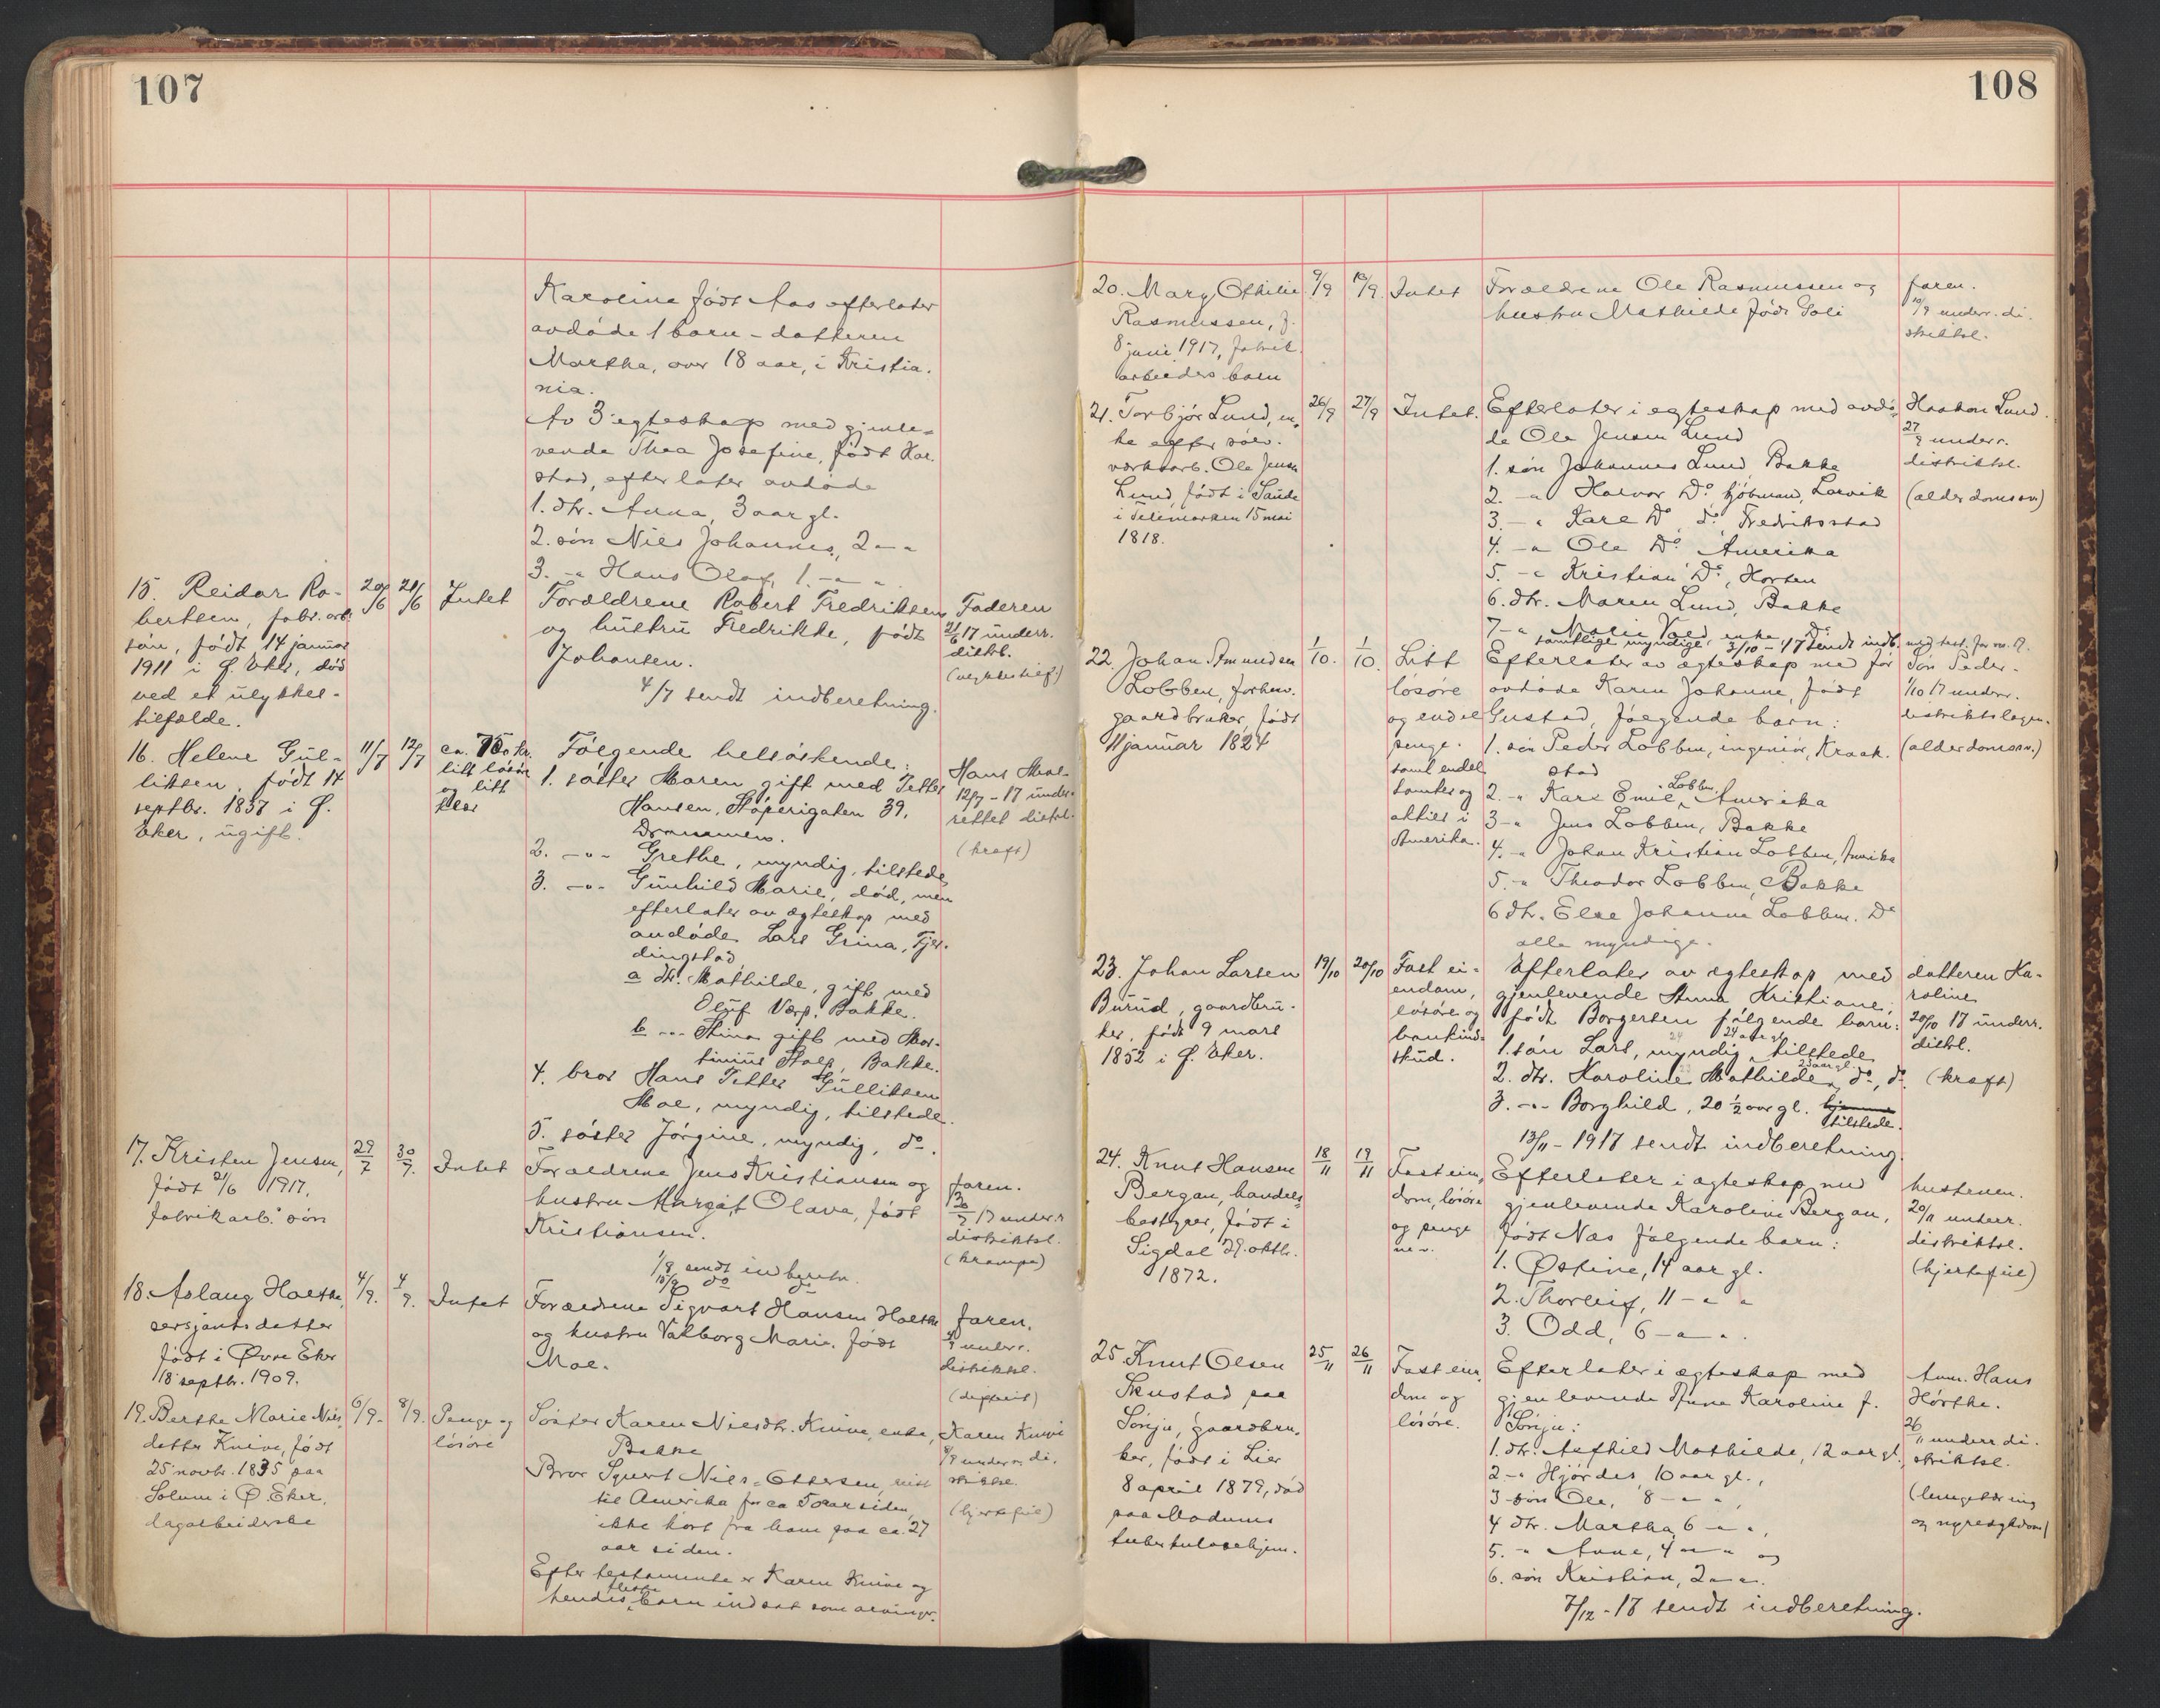 107
Karoline født Aas efterlater
avdøde 1 barn - datteren
Martha, over 18 aar, i Kristia-
nia.
Av 3 egteskap med gjenle-
vende Thea Josefine, født Kar-
stad, efterlater avdøde
1. dtr. Anna, 3 aar gl.
2. søn Niels Johannes, 2 - "
3. - " Hans Olaf, 1. - " "
15. Reidar Ro-
bertsen, fabr. arb.
søn, født 14 januar
1911 i Ø. Eker, død
ved et ulykkes-
tilfælde.
20/6
21/6
Intet
Forældrene Robert Fredriksen
og hustru Fredrikke, født
Johansen.
4/7 sendt indberetning.
Faderen
21/6 17 underr.
distrl.
16. Helene Gul-
liksen, født 14
septbr. 1837 i Ø.
Eker, ugift.
11/7
12/7
ca. 700 kr.
litt løsøre
og litt
klær
Følgende helsøskende:
1. søster Maren gift med Petter
Hansen, Støperigaten 39,
Drammen.
2. - " - Grethe, myndig, tilstede
3. - " - Gunhild Marie, død, men
efterlater av ægteskap med
avdøde Lars Grina, Fjer-
dingstad
a dtr. Mathilde, gift med
Oluf Værp. Bakke.
b - " - Stina gift med Mar-
tinius Stolp, Bakke.
4. bror Hans Petter Gulliksen
Moe, myndig, tilstede.
5. søster Jørgine, myndig, do.
Hans Moe
12/7 - 17 under-
rettet distrl.
(kræft)
17. Kristen Jensen,
født 21/6 1917,
fabrikarb. søn
29/7
30/7.
Intet
Forældrene Jens Kristiansen og
hustru Margit Olava, født
Kristiansen.
1/8 sendt indberetn.
15/9 do do
faren.
30/7 17 underr.
distriktsl.
(krampe)
18. Aslaug Holthe,
sersjants datter
født i Øvre Eker
18 septbr. 1909.
4/9.
4/9.
Intet
Forældrene Sigvart Hansen Holthe
og hustru Valborg Marie, født
Moe.
faren.
4/9 underr.
distriktsl.
(difterit)
19. Berthe Marie Niels
datter Knive, født
25 novbr. 1835 paa
Solum i Ø. Eker,
lagarbeiderske
6/9.
8/9.
Penge og
løsøre
Søster Karen Nielsdtr. Knive, enke,
Bakke
Bror Syvert Niels. Ottersen, reist
til Amerika for ca 50 aar siden,
ikke hørt fra ham paa ca. 27
aar siden.
Efter testamente er Karen Knive og
hendes fleste barn indsat som arvinger.
Karen Knive
8/9 underr. di-
striktsl.
(hjertefeil)
108
20. Mary Othilie
Rasmussen, f.
8 juni 1917, fabrik-
arbeiders barn
9/9
10/9.
Intet
Forældrene Ole Rasmussen og
hustru Mathilde født Goli
faren.
10/9 underr. di-
striktsl.
21. Torbjør Lund, en-
ke efter sølv-
verksarb. Ole Jensen
Lund, født i Saude
i Telemarken 15 mai
1818.
26/9
27/9
Intet.
Efterlater i egteskap med avdø-
de Ole Jensen Lund
1. søn Johannes Lund, Bakke
2. - " Halvor Do. sjømand, Larvik
3. - " Karl Do, do. Fredriksstad
4. - " Ole Do. Amerika
5. - " Kristian Do., Horten
6. dtr. Maren Lund, Bakke
samtlige myndige. 3/10 - 17 sendt indb.
Haakon Lund.
27/9 underr.
distriktsl.
(alderdomssv.)
22. Johan Amundsen
Lobben, forhenv.
gaardbruker, født
11 januar 1824
1/10.
1/10.
Litt
løsøre
og endel
penge.
samt endel
tomter og
aktier i
Amerika.
Efterlater av egteskap med før
avdøde Karen Johanne, født
Gustad, følgende barn:
1. søn Peder Lobben, ingeniør, Kraak-
stad
2. - " Karl Emil Lobben, Amerika
3 - " Jens Lobben, Bakke
4. - " Johan Kristian Lobben, Amerika
5. - " Theodor Lobben, Bakke
6 dtr. Else Johanne Lobben. Do
alle myndige.
Søn Peder -
1/10 17 underr.
distriktslagen.
(alderdomssv.)
23. Johan Larsen
Burud, gaardbru-
ker, født 9 mars
1852 i Ø. Eker.
19/10
20/10
Fast ei-
endom,
løsøre og
bankind-
skud.
Efterlater av egteskap med
gjenlevende Anna Kristiane,
født Borgersen følgende barn:
1. søn Lars, myndig 24 aar gl. tilstede
2. dtr. Karoline Mathilde 23 aar gl. do, do.
3. - " - Borghild, 20 1/2 aar gl. hjemme
tilstede.
13/11 - 1917 sendt indberetning.
datteren Ka-
roline
20/10 17 underr.
distrl.
(kræft)
24. Knut Hansen
Bergan, handels-
bestyrer, født i
Sigdal 29. oktbr.
1872.
18/11
19/11
Fast eien-
dom, løsøre
og penge
m. v.
Efterlater i ægteskap med
gjenlevende Karoline Bergan,
født Næs følgende barn:
1. Østine, 14 aar gl.
2. Thorleif, 11 - " "
3. Odd, 6 - " - .
hustruen.
20/11 underr.
distriktsl.
(hjertefeil)
25. Knut Olsen
Skustad paa
Sønju, gaardbru-
ker, født i Lier
8 april 1879, død
paa Modums
tuberkulosehjem.
25/11
26/11
Fast eien-
dom og
løsøre.
Efterlater i ægteskap med
gjenlevende Anne Karoline f.
Sønju:
1. dtr. Aafhild Mathilde, 12 aar gl.,
2 - " Hjørdes, 10 aar gl.,
3 søn Ole, 8 - " - ",
4 dtr. Martha, 6 - " ",
5. - " Anne, 4 - " - " og
6. søn Kristian, 2 - " - .
7/12 - 17 sendt indberetning.
Anm. Hans
Hørthe.
26/11 underr. di-
striktsl.
(lungetæring
og nyresykdom)